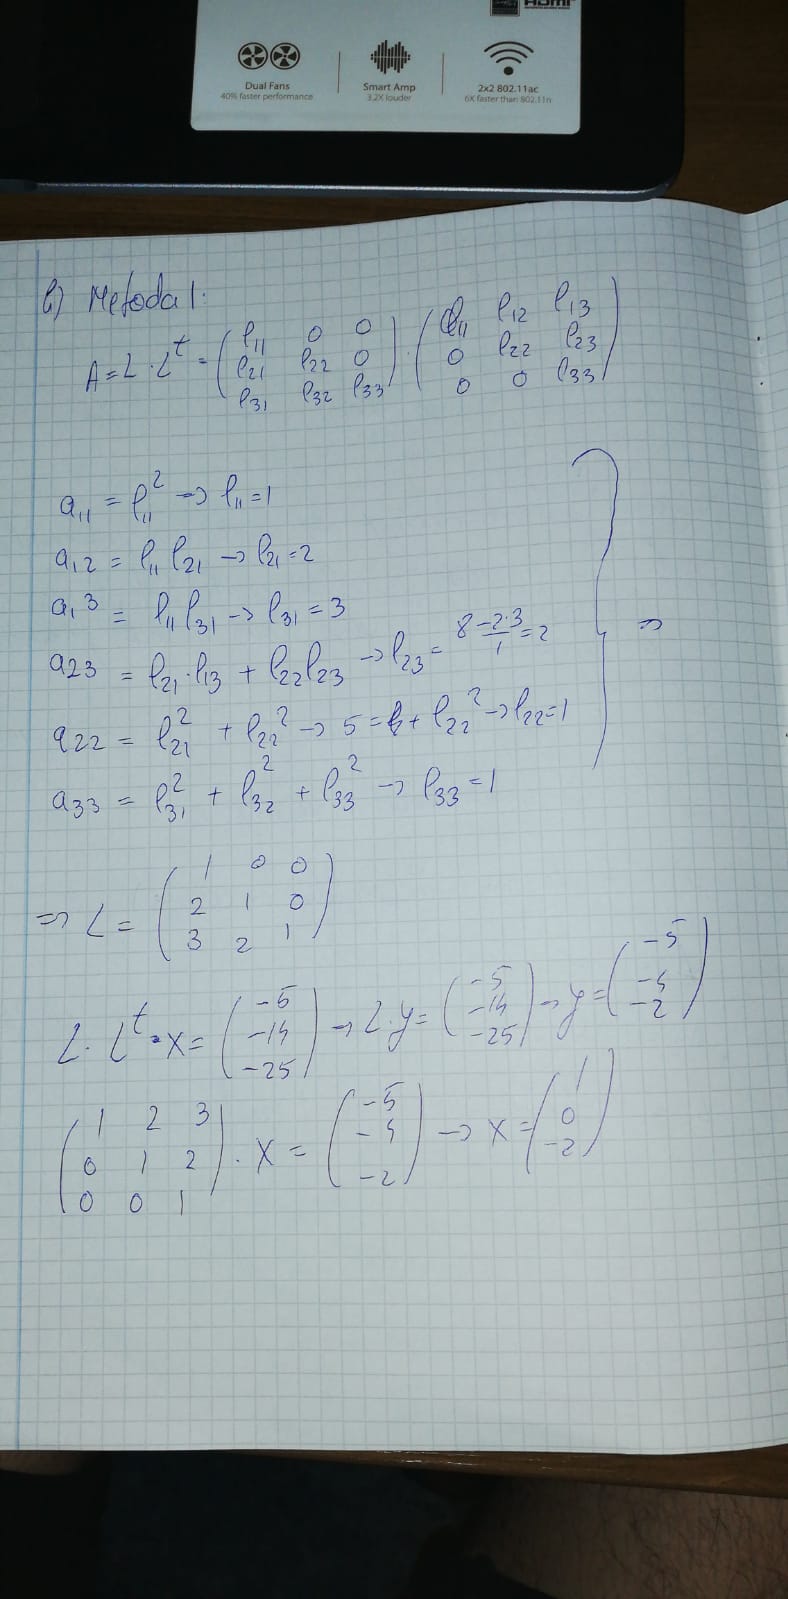 HDMI
Dual Fans
40% faster performance
Smart Amp
3.2X louder
2x2 802.11ac
6X faster than 802.11n
b) Metoda 1:
A = L · L^t = (l11 0 0; l21 l22 0; l31 l32 l33) · (l11 l12 l13; 0 l22 l23; 0 0 l33)
a11 = l11^2 → l11 = 1
a12 = l11 l21 → l21 = 2
a13 = l11 l31 → l31 = 3
a23 = l21 · l13 + l22 l23 → l23 = (8-2·3)/1 = 2
a22 = l21^2 + l22^2 → 5 = 4 + l22^2 → l22 = 1
a33 = l31^2 + l32^2 + l33^2 → l33 = 1
⇒ L = (1 0 0; 2 1 0; 3 2 1)
L · L^t · x = (-5; -14; -25) → L·y = (-5; -14; -25) → y = (-5; -4; -2)
(1 2 3; 0 1 2; 0 0 1) · x = (-5; -4; -2) → x = (1; 0; -2)